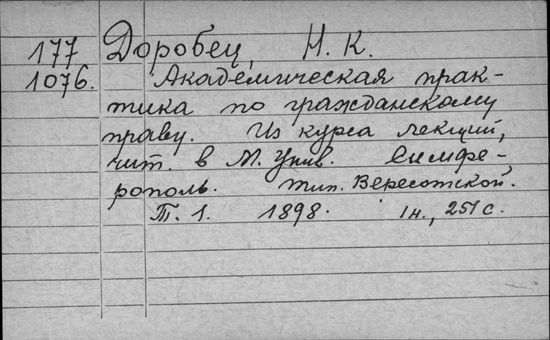 177 Доробец, Н. К.
1076. Академическая прак-
тика по гражданскому
праву. Из курса лекций,
чит. в М. Унив. Симфе-
рополь. тип. Вересотской.
Т. 1. 1898. 1н., 251 с.